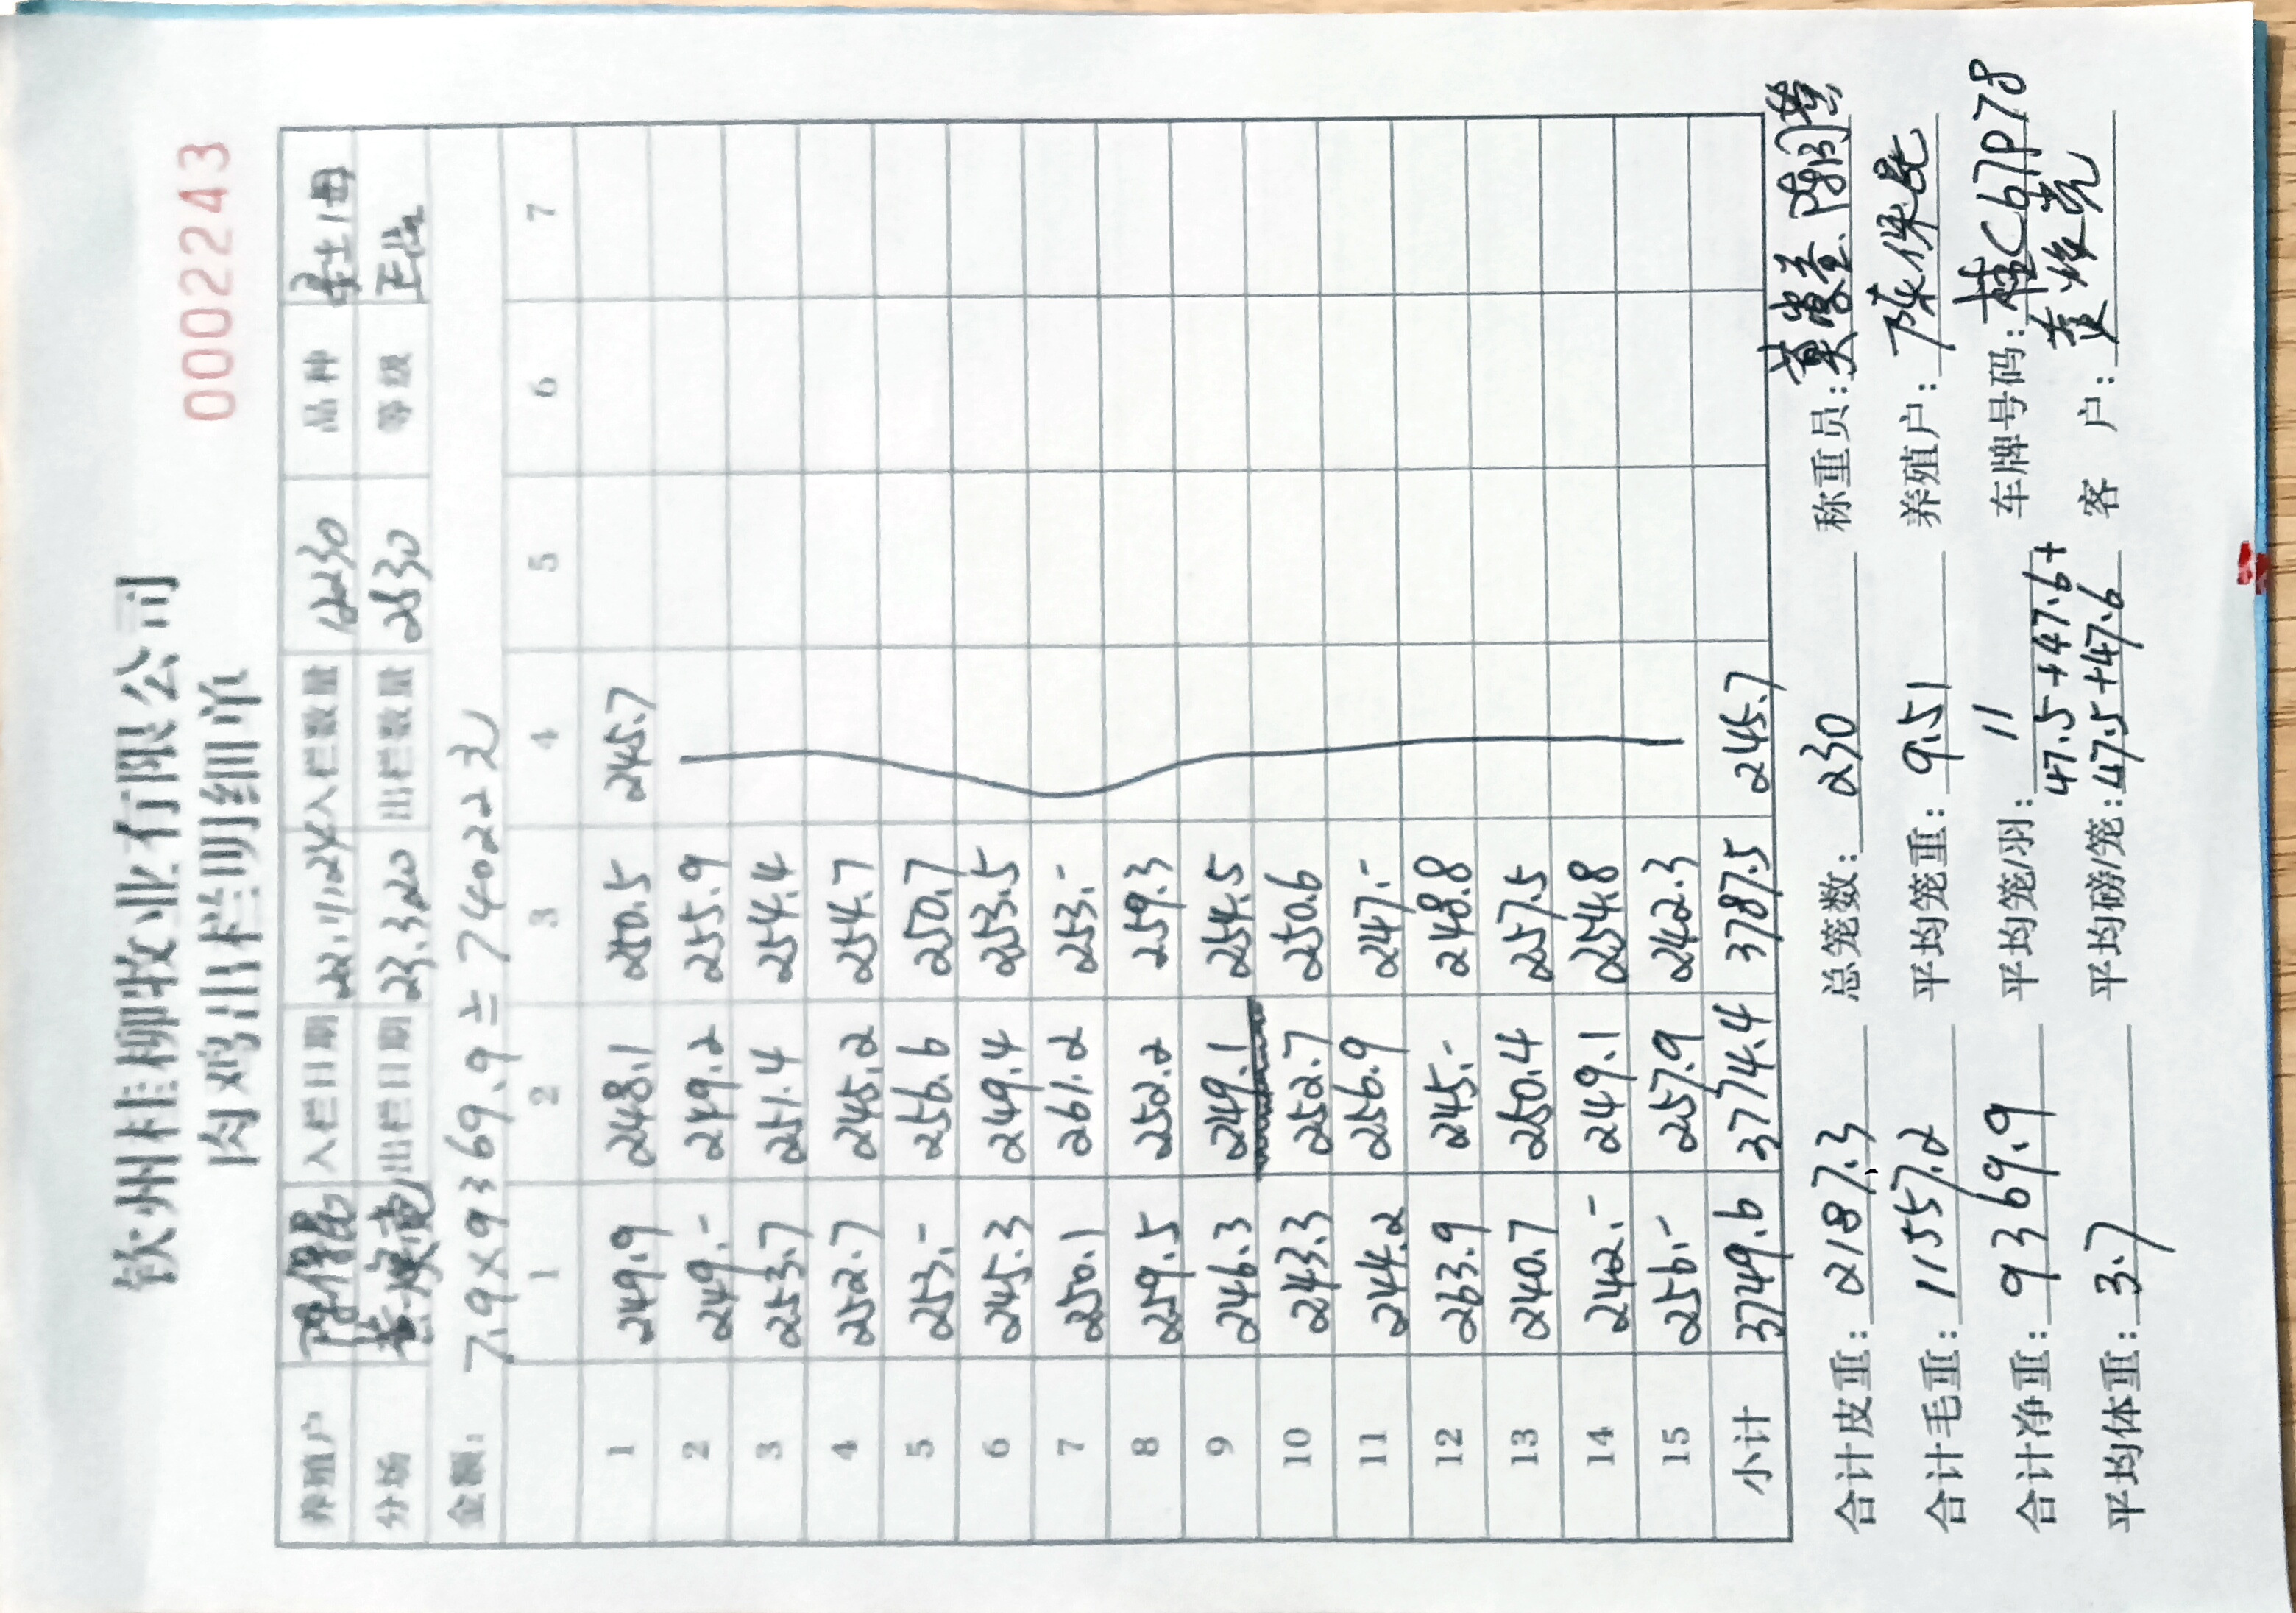 钦州桂柳牧业有限公司
肉鸡出栏明细单
0002243
养殖户 陈保昆 入栏日期 22.11.24 入栏数量 12230 品种
分场 出栏日期 23.3.20 出栏数量 2530 等级
金额: 7.9×9369.9≐74022元
1 2 3 4 5 6 7
1 249.9 248.1 250.5 245.7
2 249.- 249.2 255.9
3 253.7 251.4 254.4
4 252.7 245.2 254.7
5 253.- 256.6 250.7
6 245.3 249.4 253.5
7 250.1 261.2 253.-
8 259.5 250.2 259.3
9 246.3 249.1 254.5
10 243.3 252.7 250.6
11 244.2 256.9 247.-
12 263.9 245.- 248.8
13 240.7 250.4 257.5
14 242.- 249.1 254.8
15 256.- 257.9 242.3
小计 3749.6 3774.4 3787.5 245.7
合计皮重: 2187.3 总笼数: 230 称重员:
合计毛重: 11557.2 平均笼重: 9.51 养殖户: 陈保昆
合计净重: 9369.9 平均笼/羽: 11 车牌号码: 桂C67P78
47.5+47.6+
平均体重: 3.7 平均磅/笼: 47.5+47.6 客户: